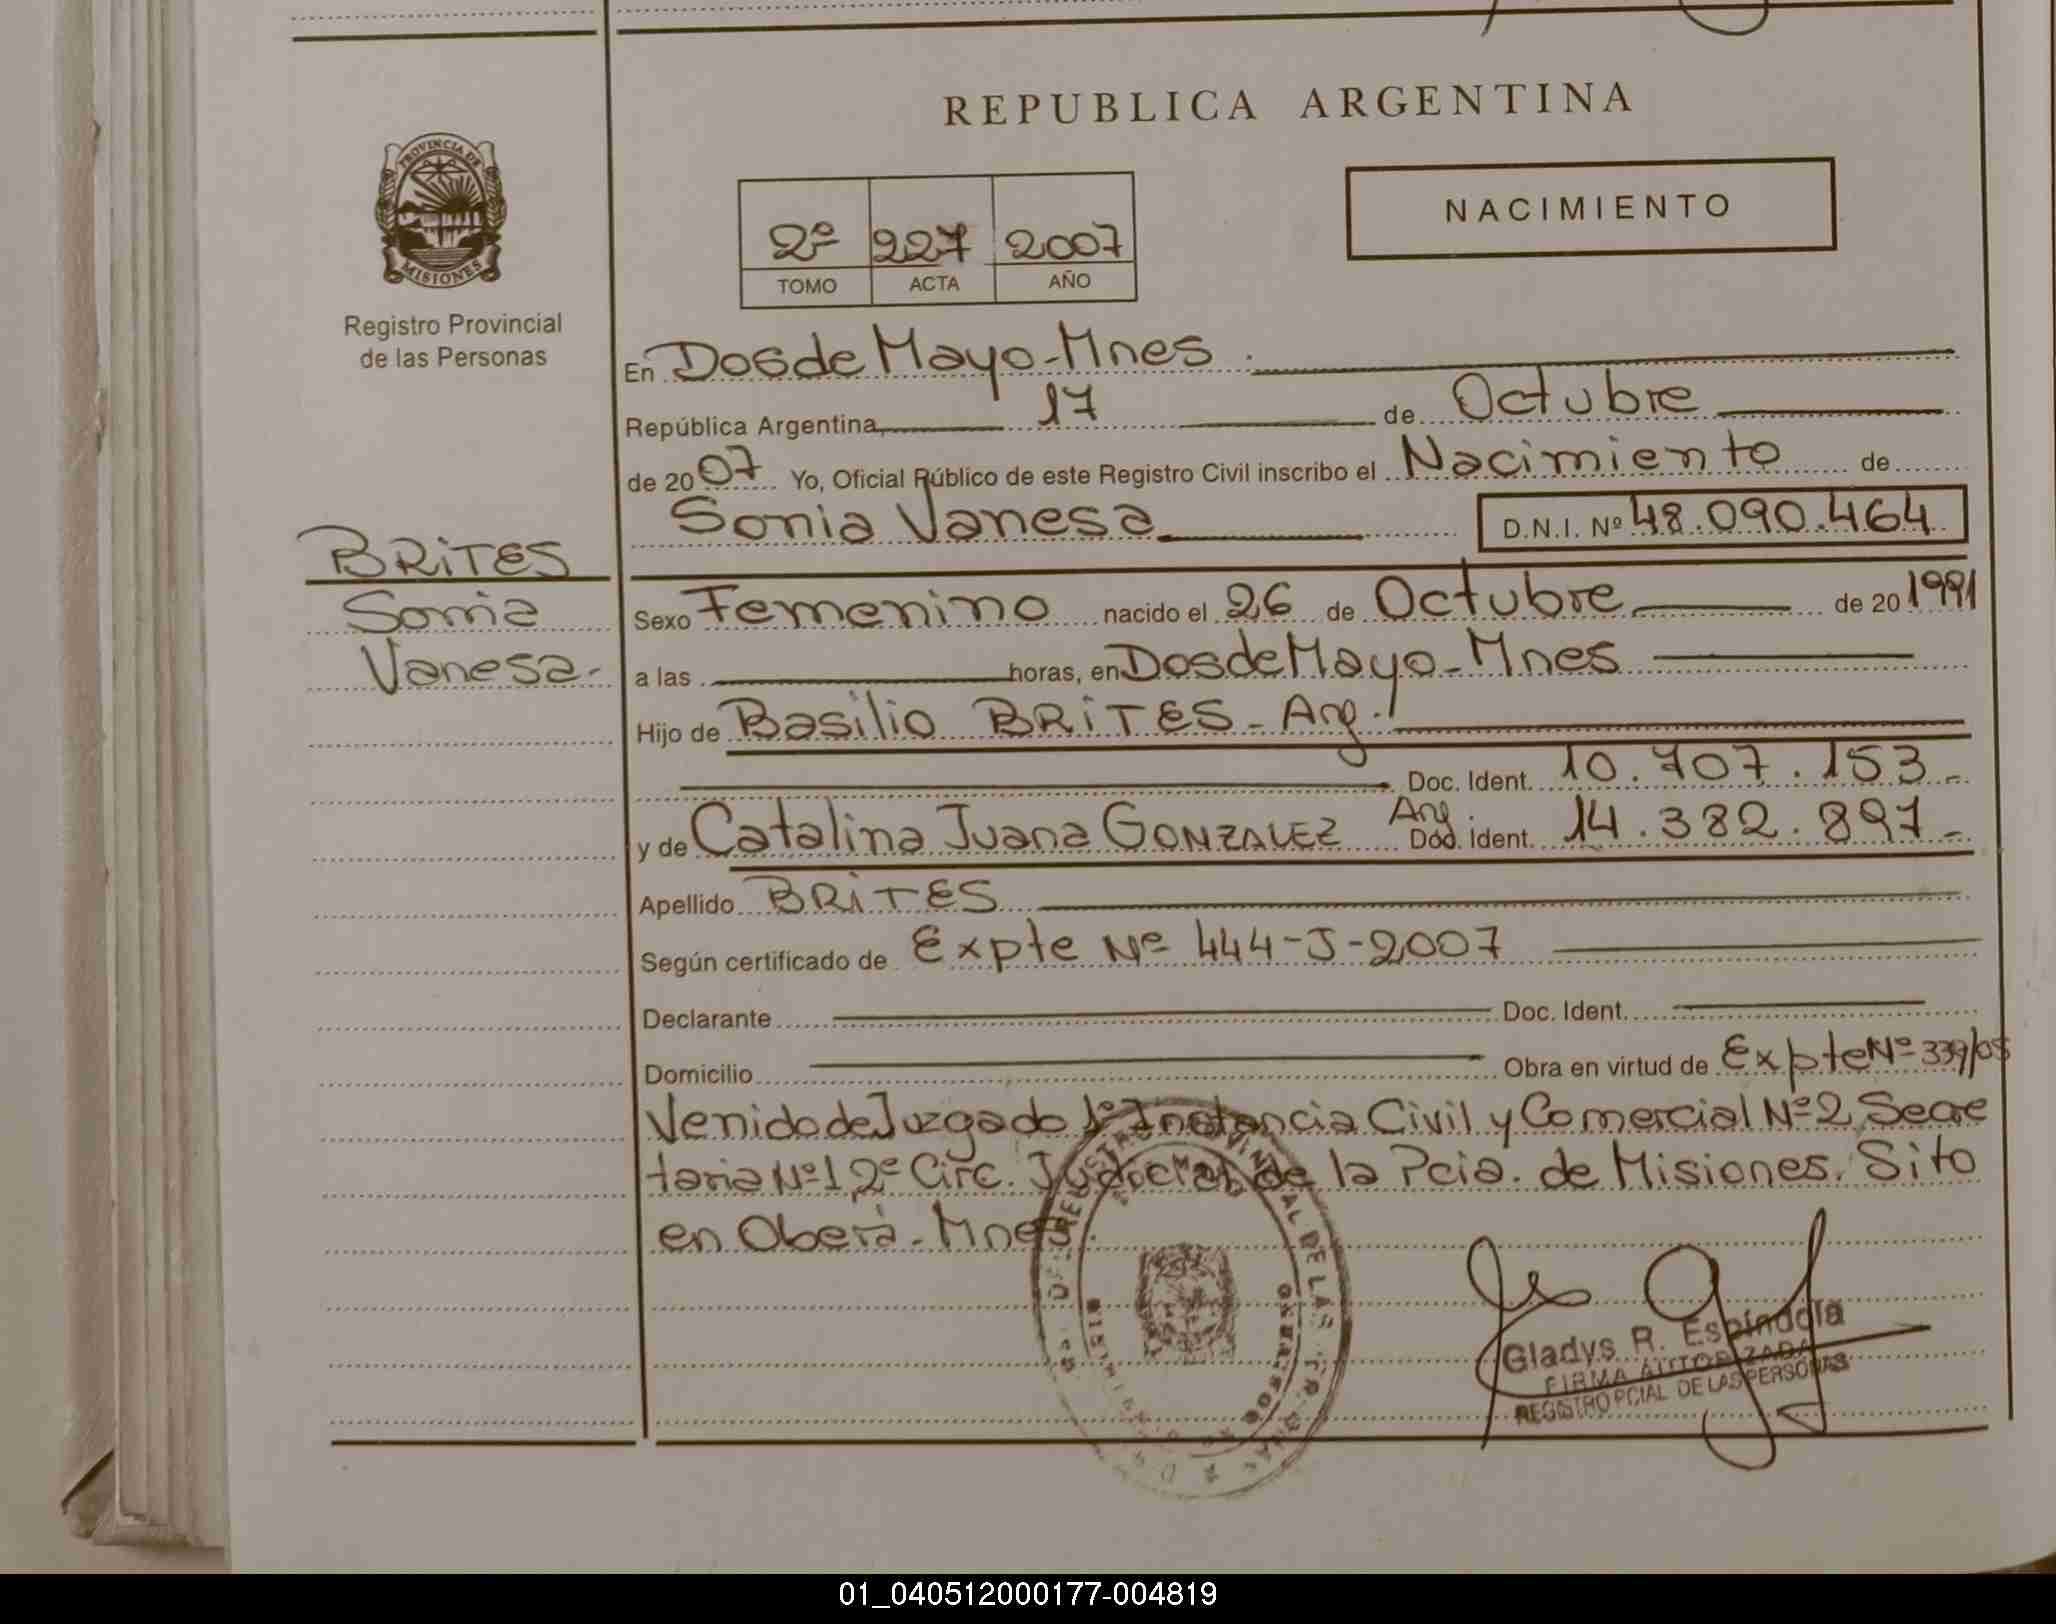 REPUBLICA ARGENTINA
PROVINCIA DE
MISIONES
Registro Provincial
de las Personas
NACIMIENTO
2º 227 2007
TOMO ACTA AÑO
En Dos de Mayo-Mnes.
República Argentina, 17 de Octubre
de 2007 Yo, Oficial Público de este Registro Civil inscribo el Nacimiento de
Sonia Vanesa D.N.I. Nº 48.090.464
BRiTES
Sonia
Vanesa-
Sexo Femenino nacido el 26 de Octubre de 20 1991
a las horas, en Dos de Mayo-Mnes
Hijo de Basilio BRiTES-Arg.
Doc. Ident. 10.707.153-
y de Catalina Juana GONZALEZ Arg. Doc. Ident. 14.382.897-
Apellido BRiTES
Según certificado de Expte Nº 444-J-2007
Declarante Doc. Ident.
Domicilio Obra en virtud de Expte Nº 339/05
Venido de Juzgado 1º Instancia Civil y Comercial Nº2, Secre
taria Nº1, 2º Circ. Judicial de la Pcia. de Misiones. Sito
en Oberá-Mnes.
Gladys R. Espíndola
FIRMA AUTORIZADA
REGISTRO PCIAL DE LAS PERSONAS
01_040512000177-004819